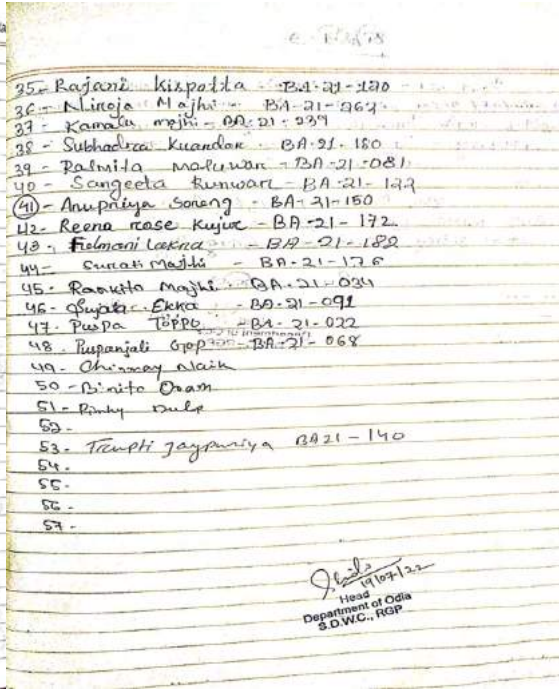 35- Rajani Kispotta - BA-21-120
36- Niroja Majhi - BA-21-262
37- Kamala majhi - BA-21-239
38- Subhadra Kuandar - BA-21-180
39- Rasmita - BA-21-081
40- Sangeeta Kunwar - BA-21-122
41- Anupriya Soreng - BA-21-150
42- Reena rose Kujur - BA-21-172
43- Fulmani Lakra - BA-21-182
44- Sunati Majhi - BA-21-176
45- Rankita Majhi - BA-21-034
46- Sujata Ekka - BA-21-091
47- Puspa Toppo - BA-21-022
48. Puspanjali Gop - BA-21-068
49- Chinmay Naik
50- Binita Oram
51- Pinky
52-
53- Trupti Jaypuriya BA21-140
54-
55-
56-
57-
19/07/22
Head
Department of Odia
S.D.W.C., RGP